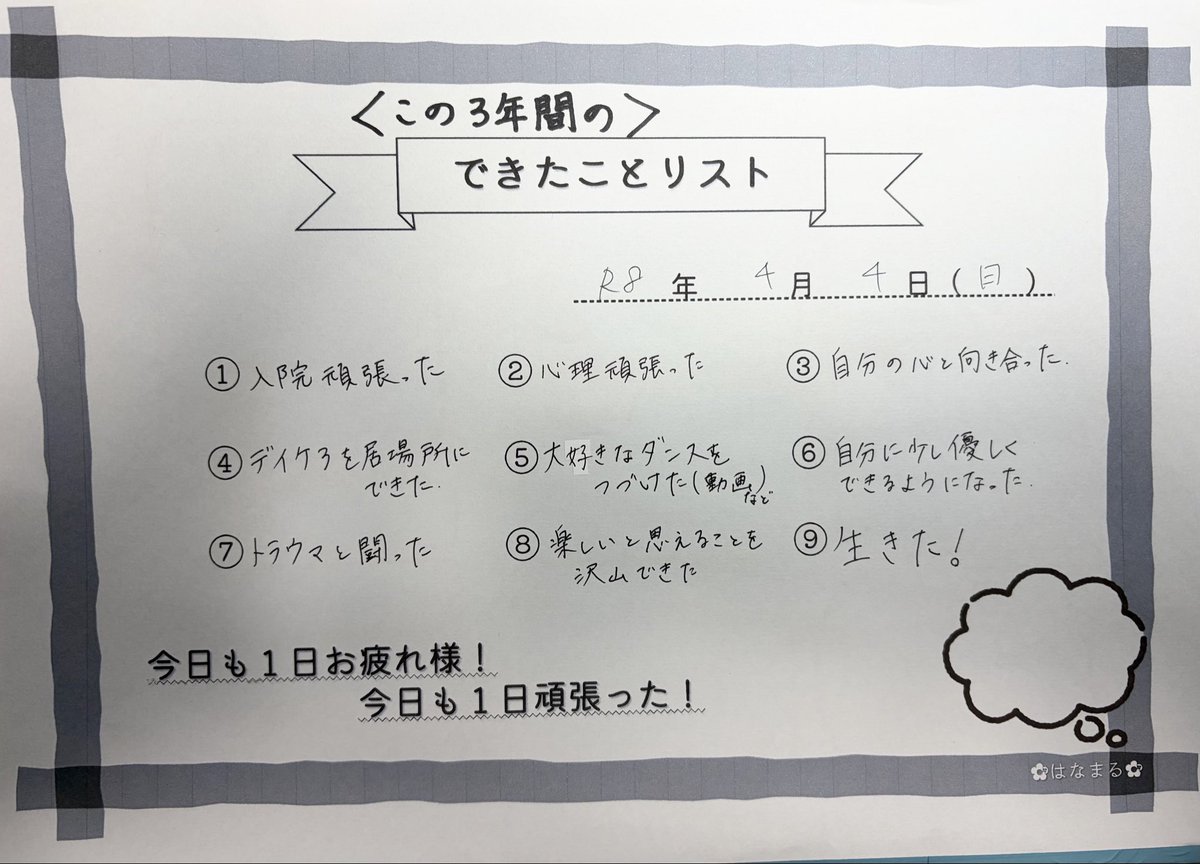 <この3年間の>
できたことリスト
R8年 4月 4日(日)
①入院頑張った
②心理頑張った
③自分の心と向き合った.
④デイケアを居場所に
できた.
⑤大好きなダンスを
つづけた(動画など)
⑥自分に少し優しく
できるようになった.
⑦トラウマと闘った
⑧楽しいと思えることを
沢山できた
⑨生きた!
今日も1日お疲れ様!
今日も1日頑張った!
✿はなまる✿